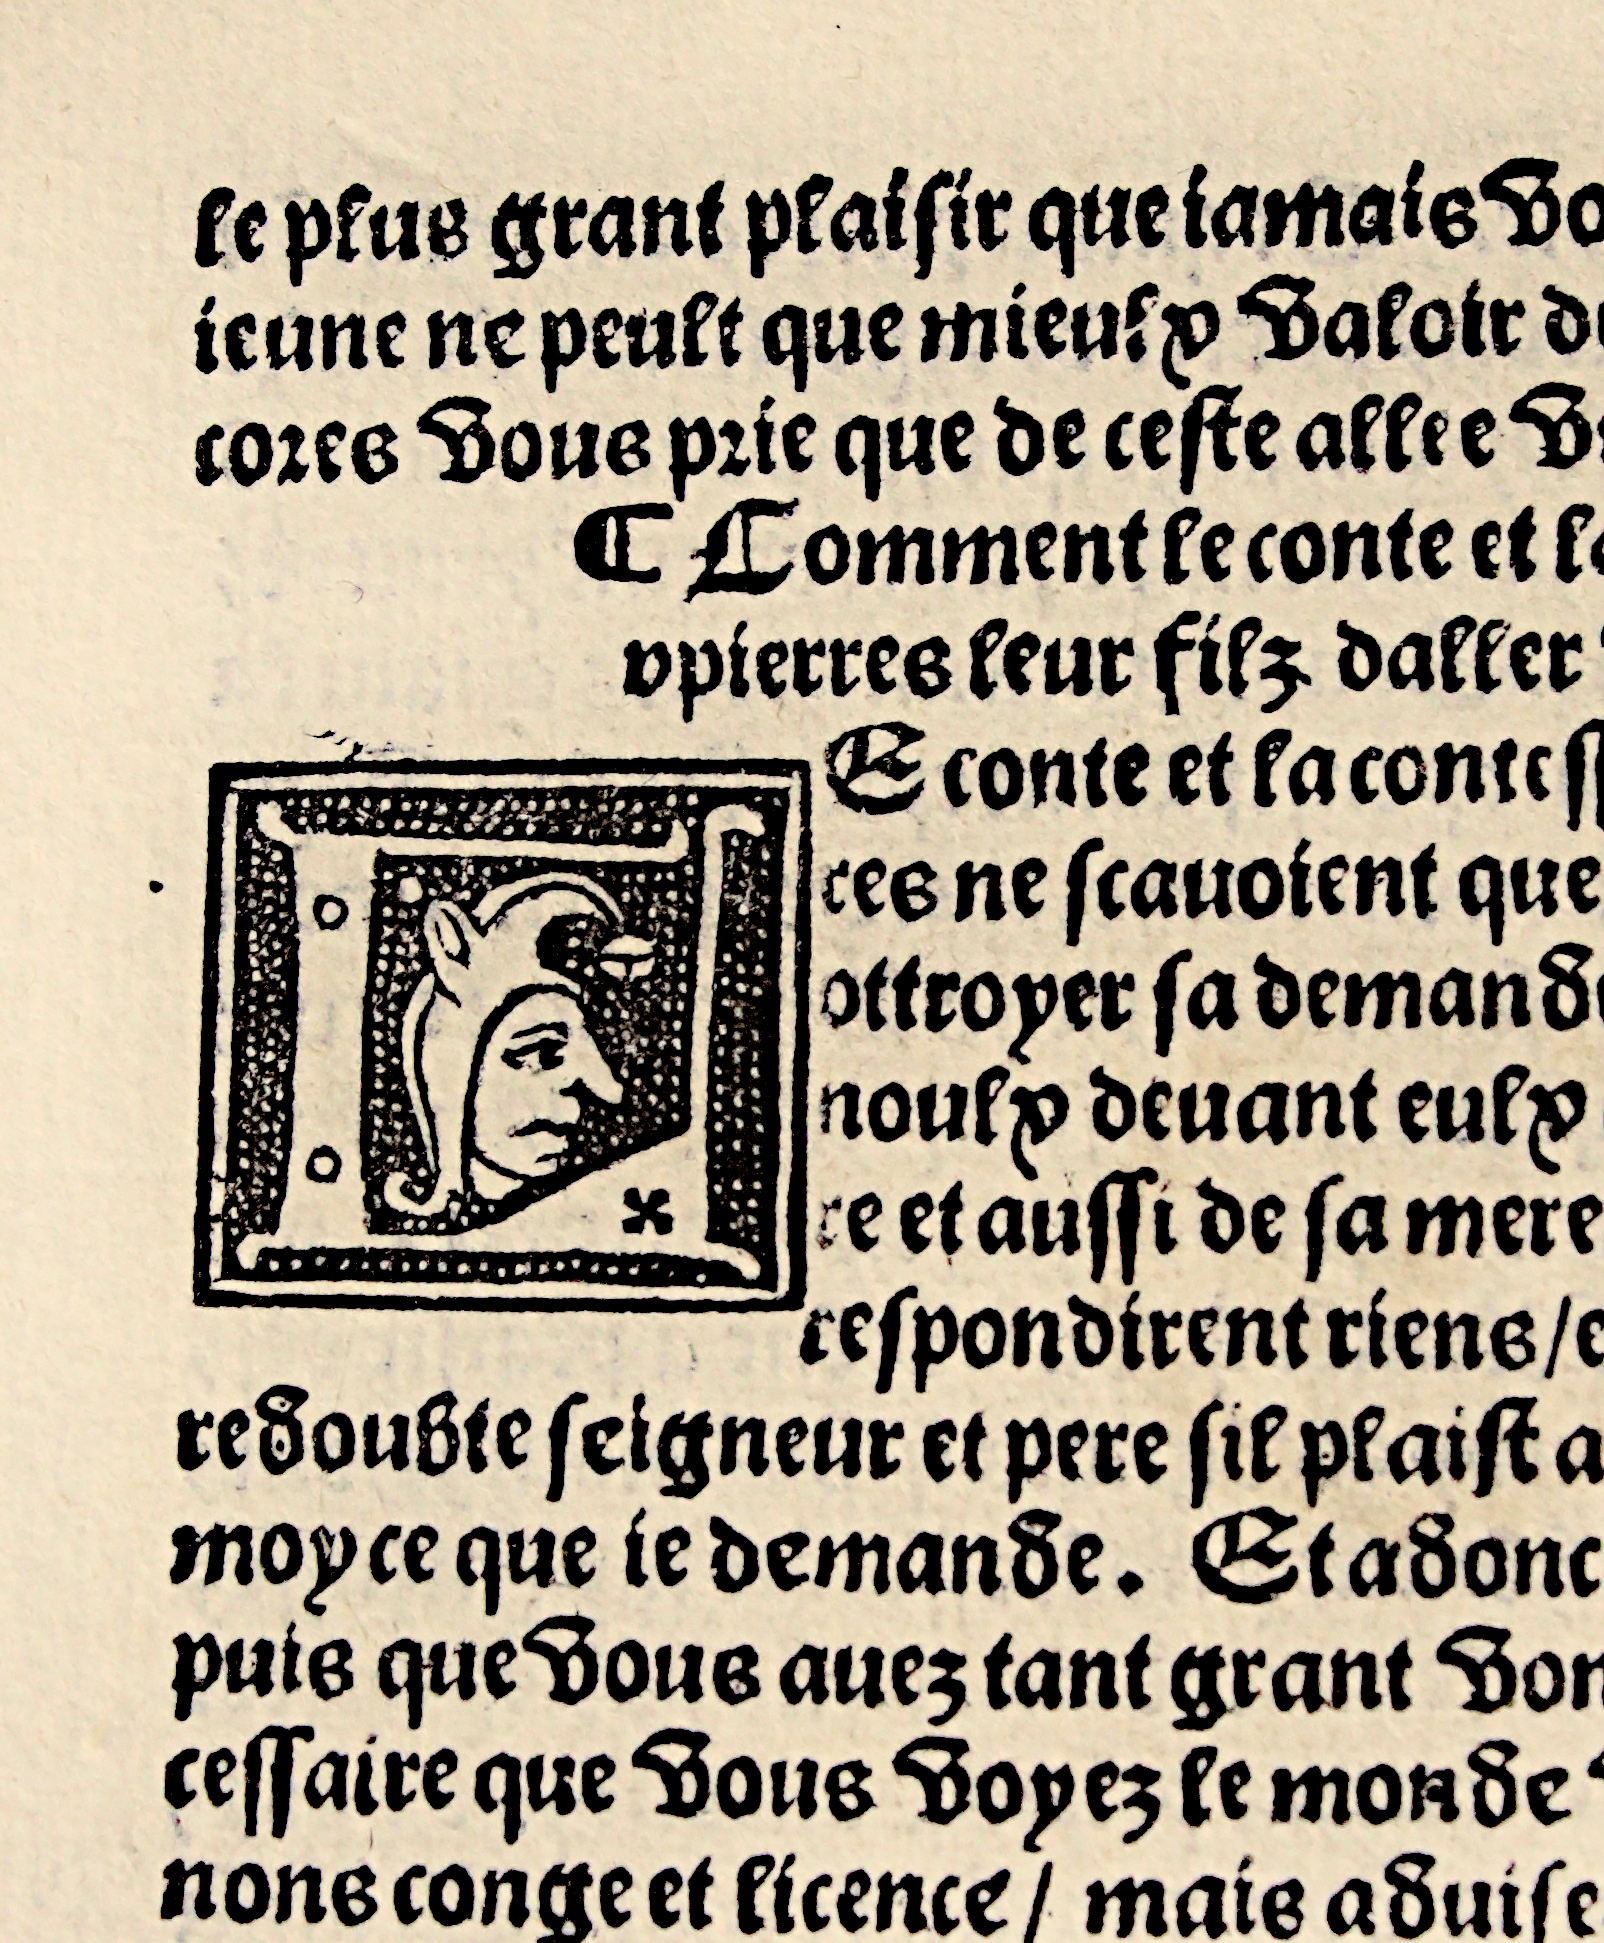 le plus grant plaiſir que iamais vo
ieune ne peult que mieulx valoir de
cores vous prie que de ceſte allee v
¶ Comment le conte et la
xpierres leur filz daller
LE conte et la conteſſ
res ne ſcauoient que
ottroyer ſa demande
noulx deuant eulx
re et auſſi de ſa mere
reſpondirent riens/e
redoubte ſeigneur et pere ſil plaiſt a
moy ce que ie demande. Et adonc
puis que vous auez tant grant von
ceſſaire que vous voyez le monde
nons conge et licence/ mais aduiſe